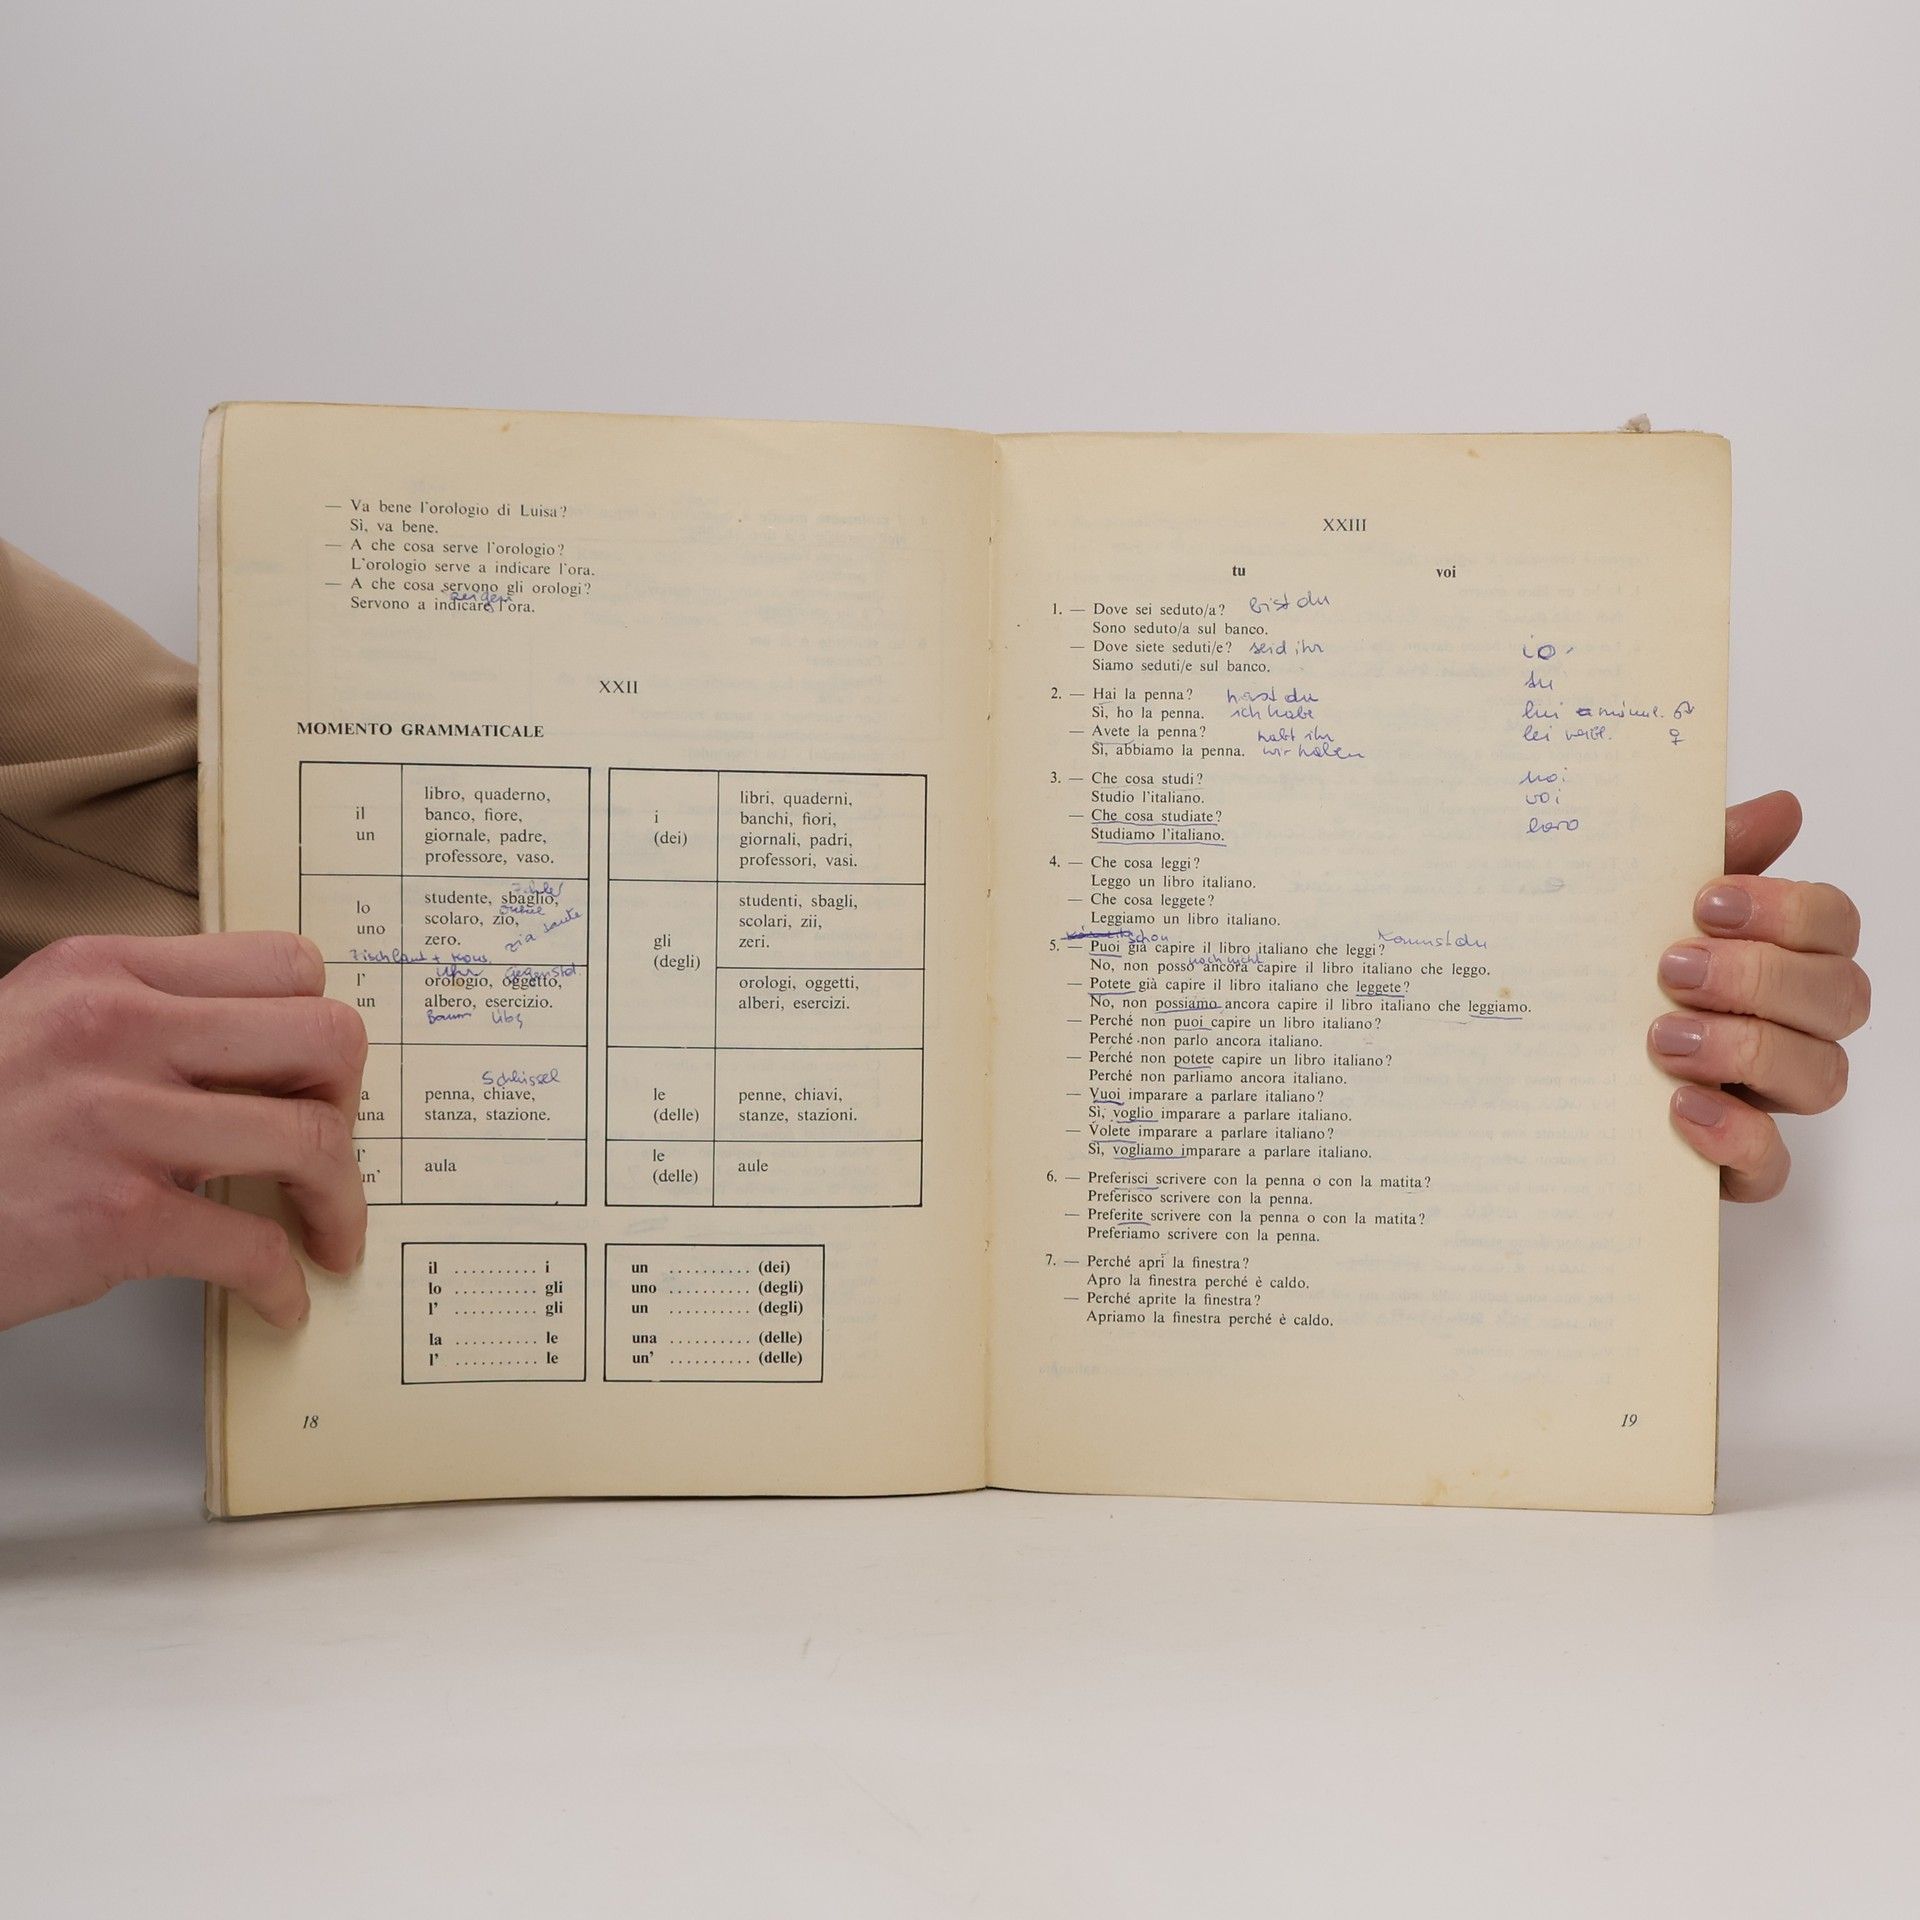 — Va bene l'orologio di Luisa?
Sì, va bene.
— A che cosa serve l'orologio?
L'orologio serve a indicare l'ora.
— A che cosa servono gli orologi?
zeigen
Servono a indicare l'ora.
XXII
MOMENTO GRAMMATICALE
il
un
libro, quaderno,
banco, fiore,
giornale, padre,
professore, vaso.
i
(dei)
libri, quaderni,
banchi, fiori,
giornali, padri,
professori, vasi.
lo
uno
studente, sbaglio,
scolaro, zio,
zia tante
zero.
gli
(degli)
studenti, sbagli,
scolari, zii,
zeri.
Zischlaut + Kons.
l'
un
Uhr Gegenstd.
orologio, oggetto,
albero, esercizio.
Baum Übg
orologi, oggetti,
alberi, esercizi.
a
una
Schlüssel
penna, chiave,
stanza, stazione.
le
(delle)
penne, chiavi,
stanze, stazioni.
l'
un'
aula
le
(delle)
aule
il .......... i
lo .......... gli
l' .......... gli
la .......... le
l' .......... le
un .......... (dei)
uno .......... (degli)
un .......... (degli)
una .......... (delle)
un' .......... (delle)
18
XXIII
tu voi
1. — Dove sei seduto/a? bist du
Sono seduto/a sul banco.
— Dove siete seduti/e? seid ihr
Siamo seduti/e sul banco.
2. — Hai la penna? hast du
Sì, ho la penna. ich habe
— Avete la penna? habt ihr
Sì, abbiamo la penna. wir haben
3. — Che cosa studi?
Studio l'italiano.
— Che cosa studiate?
Studiamo l'italiano.
io
tu
lui ♂
lei weibl. ♀
noi
voi
loro
4. — Che cosa leggi?
Leggo un libro italiano.
— Che cosa leggete?
Leggiamo un libro italiano.
schon Kannst du
5. — Puoi già capire il libro italiano che leggi?
noch nicht
No, non posso ancora capire il libro italiano che leggo.
— Potete già capire il libro italiano che leggete?
No, non possiamo ancora capire il libro italiano che leggiamo.
— Perché non puoi capire un libro italiano?
Perché non parlo ancora italiano.
— Perché non potete capire un libro italiano?
Perché non parliamo ancora italiano.
— Vuoi imparare a parlare italiano?
Sì, voglio imparare a parlare italiano.
— Volete imparare a parlare italiano?
Sì, vogliamo imparare a parlare italiano.
6. — Preferisci scrivere con la penna o con la matita?
Preferisco scrivere con la penna.
— Preferite scrivere con la penna o con la matita?
Preferiamo scrivere con la penna.
7. — Perché apri la finestra?
Apro la finestra perché è caldo.
— Perché aprite la finestra?
Apriamo la finestra perché è caldo.
19